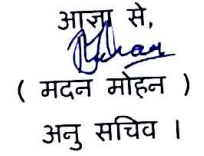 आज्ञा से,
( मदन मोहन )
अनु सचिव ।